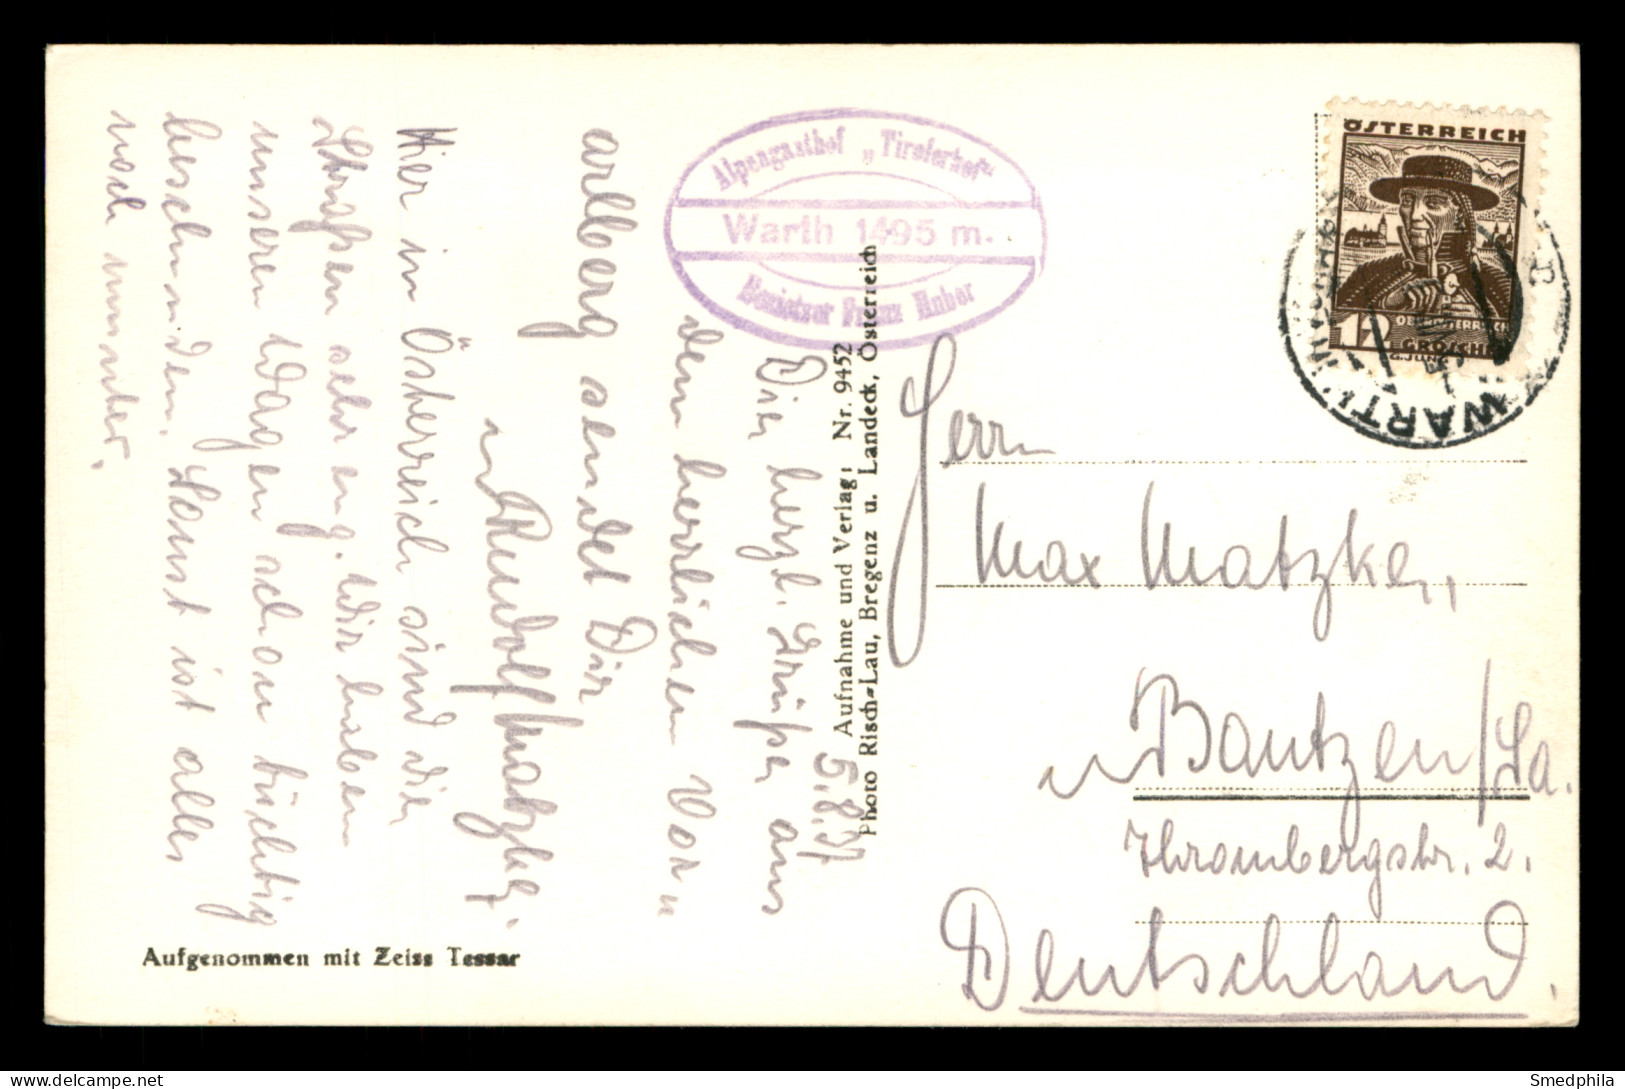 5.8.37
Die herzl. Grüße aus
dem herrlichen Vor=
arlberg sendet Dir
Rudolf Matzke.
Hier in Österreich sind die
Straßen sehr eng. Wir haben
unseren Wagen schon tüchtig
beschunden. Sonst ist alles
noch munter.
Aufgenommen mit Zeiss Tessar
Alpengasthof „Tirolerhof“
Warth 1495 m.
Besitzer Franz Huber
Aufnahme und Verlag: Nr. 9452
Photo Risch=Lau, Bregenz u. Landeck, Österreich
ÖSTERREICH
12
OBERÖSTERREICH
GROSCHEN
WARTH
VORARLBERG
Herrn
Max Matzke,
Bautzen/Sa.
Thrombergstr. 2.
Deutschland.
Smedphila